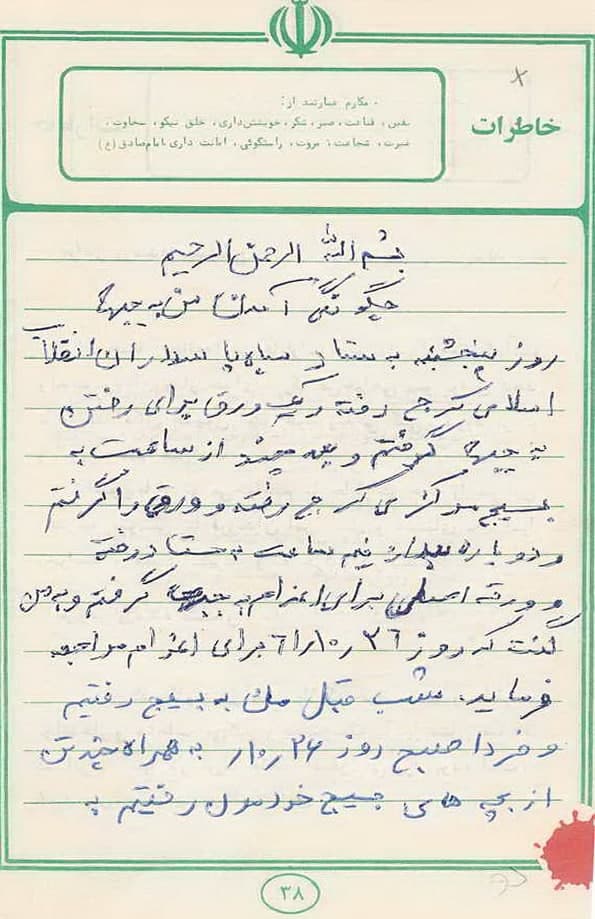 خاطرات
مکارم عبارتند از:
یقین، قناعت، صبر، شکر، خویشتن‌داری، خلق نیکو، سخاوت،
غیرت، شجاعت، مروت، راستگوئی، امانت داری، امام‌صادق (ع)
بسم الله الرحمن الرحیم
چگونگی آمدن من به جبهه
روز پنجشنبه به ستاد سپاه پاسداران انقلاب
اسلامی کرج رفته و یک ورق برای رفتن
به جبهه گرفتم و بعد چند از ساعت به
بسیج مرکزی کرج رفته و ورق را گرفتم
و دوباره بعد از نیم ساعت به ستاد رفته
و ورقه اصلی برای اعزام به جبهه گرفتم و به من
گفت که روز ۲۶/۱۰/۶۱ برای اعزام مراجعه
فرماید. شب قبل ما به بسیج رفتیم
و فردا صبح روز ۲۶/۱۰/ به همراه چند تن
از بچه های بسیج خودمون رفتیم به
۳۸